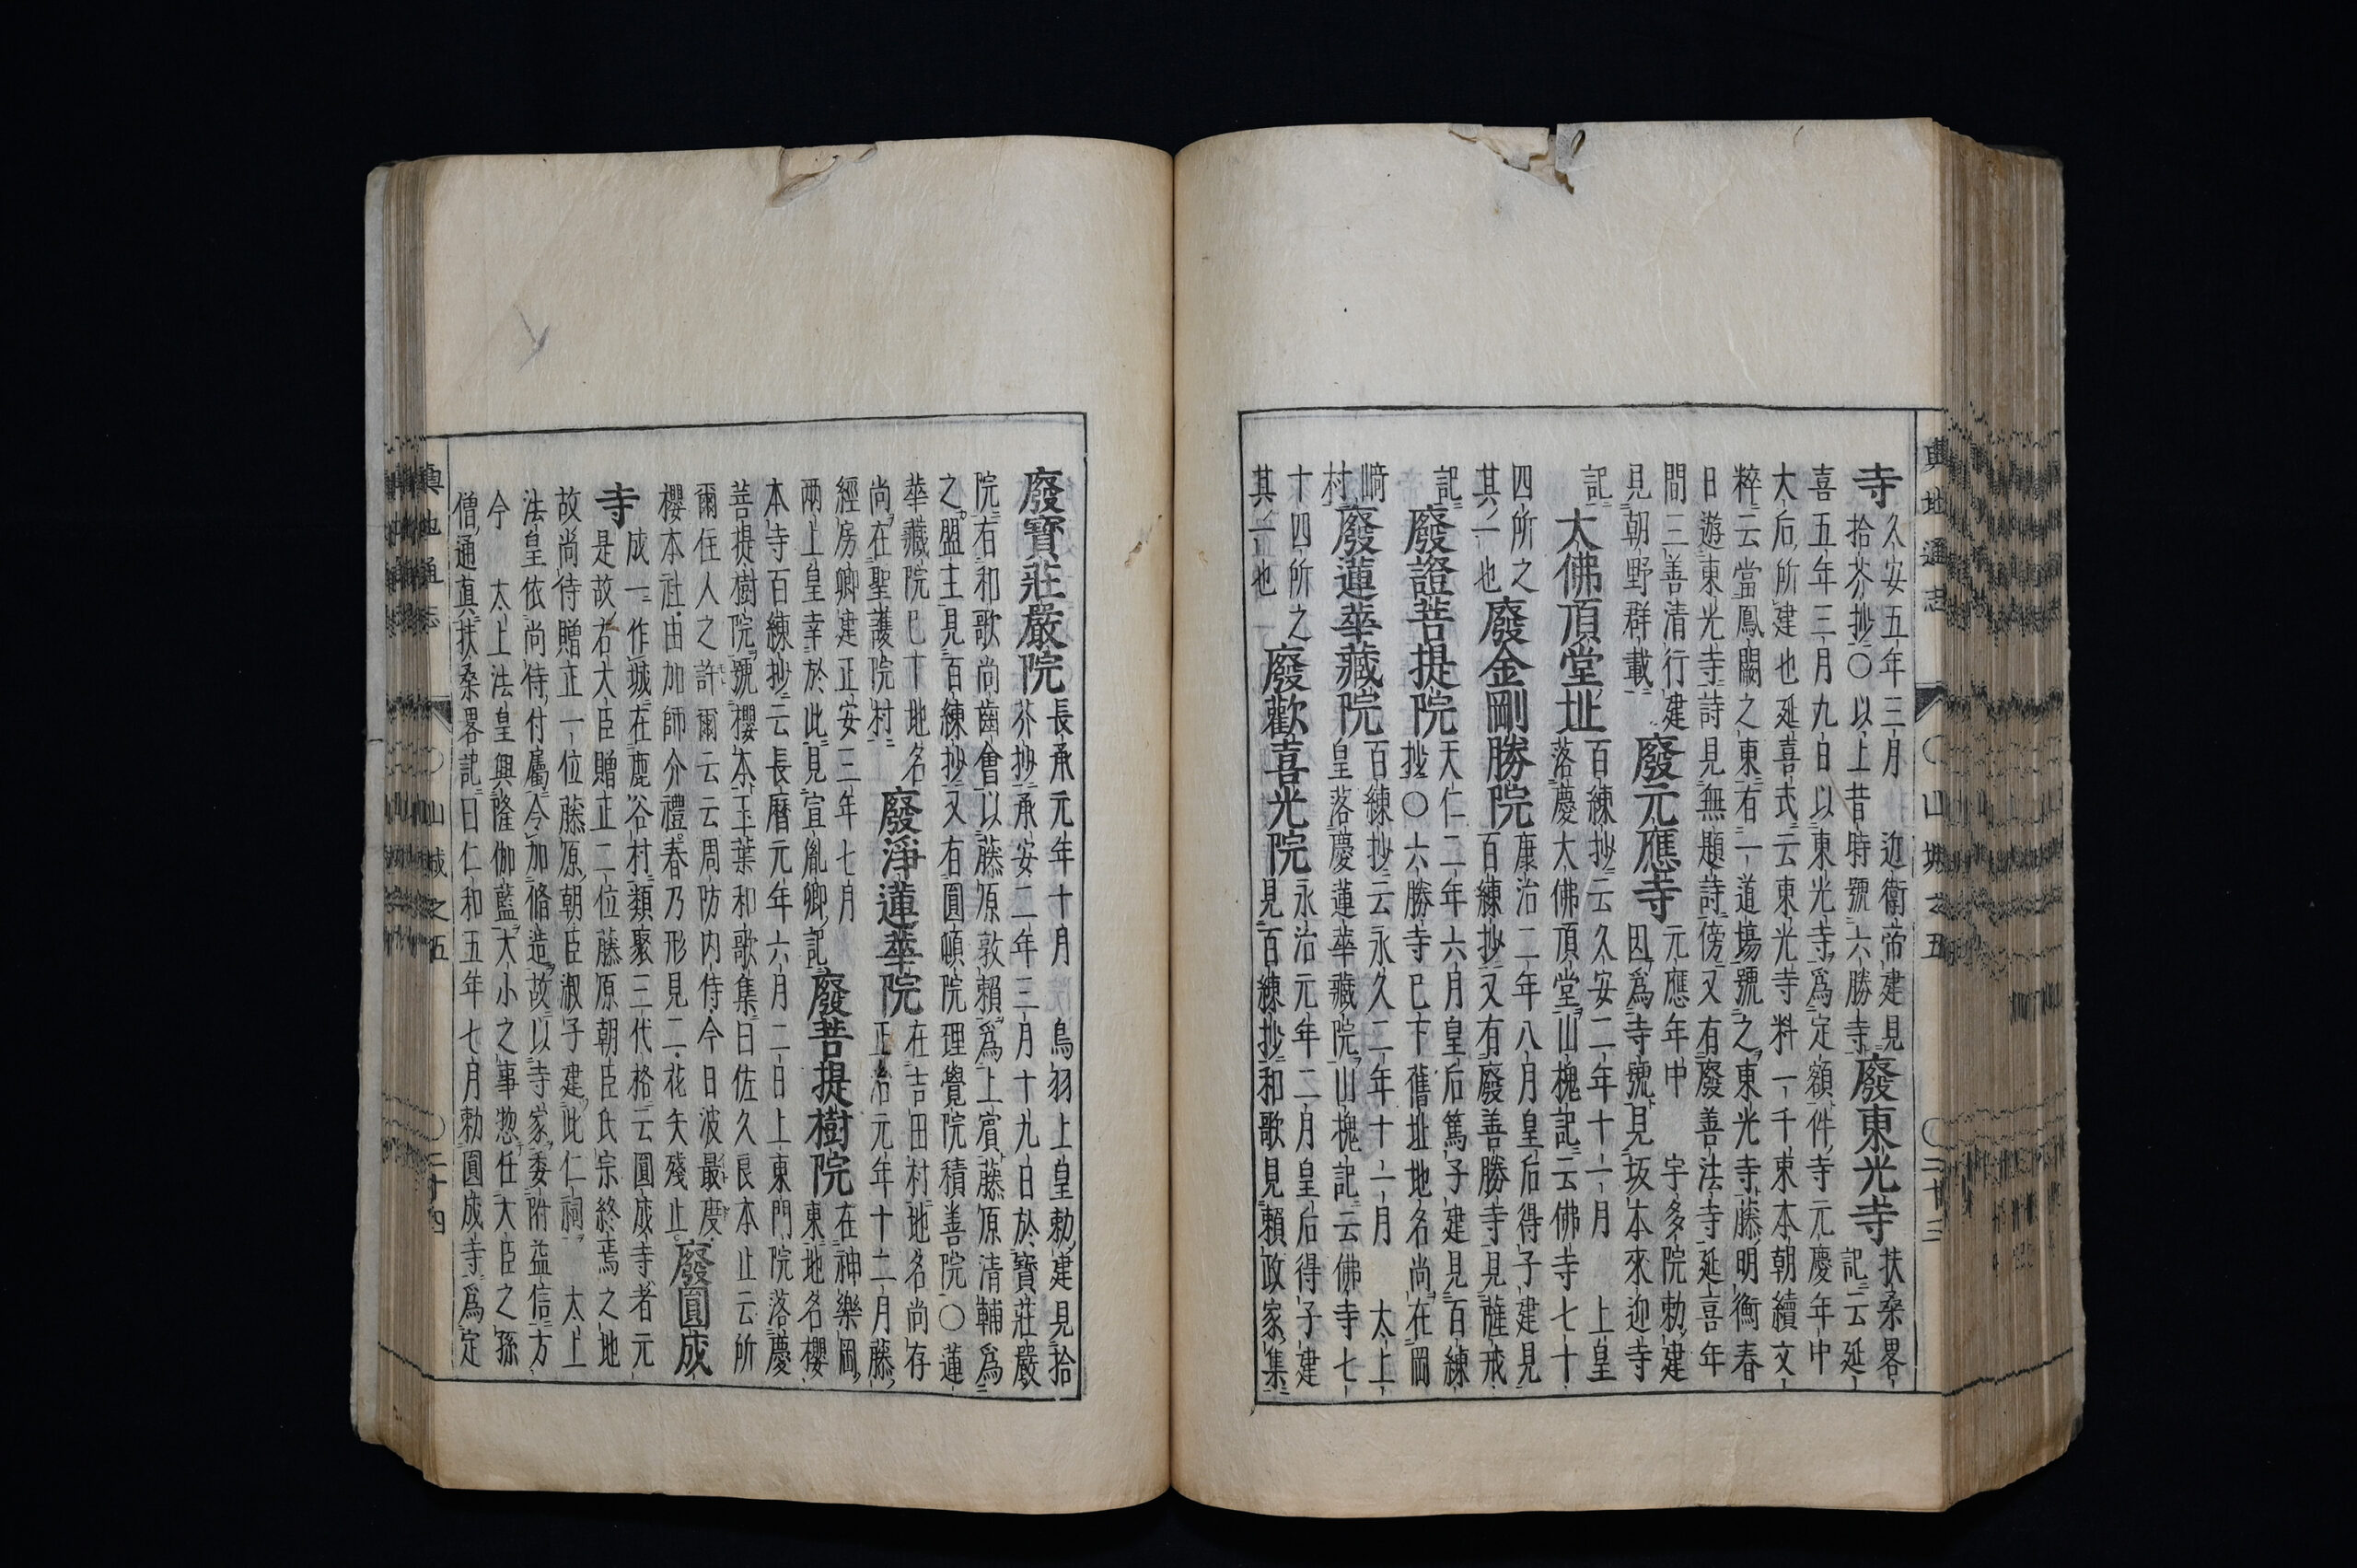 輿地通志 ○山城之五 ○二十三
寺
久安五年三月 近衛帝建見
拾芥抄○以上昔時號六勝寺
廢東光寺
扶桑畧
記云延
喜五年三月九日以東光寺爲定額件寺元慶年中
大后所建也延喜式云東光寺料一千束本朝續文
粹云當鳳闕之東右一道場號之東光寺藤明衡春
日遊東光寺詩見無題詩傍又有廢善法寺延喜年
間三善清行建
見朝野群載
廢元應寺
元應年中 宇多院勅建
因爲寺號見坂本來迎寺
記
大佛頂堂址
百練抄云久安二年十一月 上皇
落慶大佛頂堂山槐記云佛寺七十
四所之
其一也
廢金剛勝院
康治二年八月皇后得子建見
百練抄又有廢善勝寺見薩戒
記
廢證菩提院
天仁二年六月皇后篤子建見百練
抄○六勝寺已下舊址地名尚在岡
﨑
村
廢蓮華藏院
百練抄云永久二年十一月 太上
皇落慶蓮華藏院山槐記云佛寺七
十四所之
其一也
廢歡喜光院
永治元年二月皇后得子建
見百練抄和歌見賴政家集
廢寶莊嚴院
長承元年十月 鳥羽上皇勅建見拾
芥抄承安二年三月十九日於寶莊嚴
院有和歌尚齒會以藤原敦賴爲上賓藤原清輔爲
之盟主見百練抄又有圓頓院理覺院積善院○蓮
華藏院已下地名
尚在聖護院村
廢淨蓮華院
在吉田村地名尚存
正治元年十二月藤
經房卿建正安三年七月
兩上皇幸於此見宣胤卿記
廢菩提樹院
在神樂岡
東地名櫻
本寺百練抄云長曆元年六月二日上東門院落慶
菩提樹院號櫻本玉葉和歌集曰佐久良本止云所
爾住人之許爾云云周防内侍今日波最度
櫻本社由加師介禮春乃形見二花矢殘止
廢圓成
寺
成一作城在鹿谷村類聚三代格云圓成寺者元
是故右大臣贈正二位藤原朝臣氏宗終焉之地
故尚侍贈正一位藤原朝臣淑子建此仁祠 太上
法皇依尚侍付屬令加脩造故以寺家委附益信方
今 太上法皇興隆伽藍大小之事惣任大臣之孫
僧通眞扶桑畧記曰仁和五年七月勅圓成寺爲定
輿地通志 ○山城之五 ○二十四